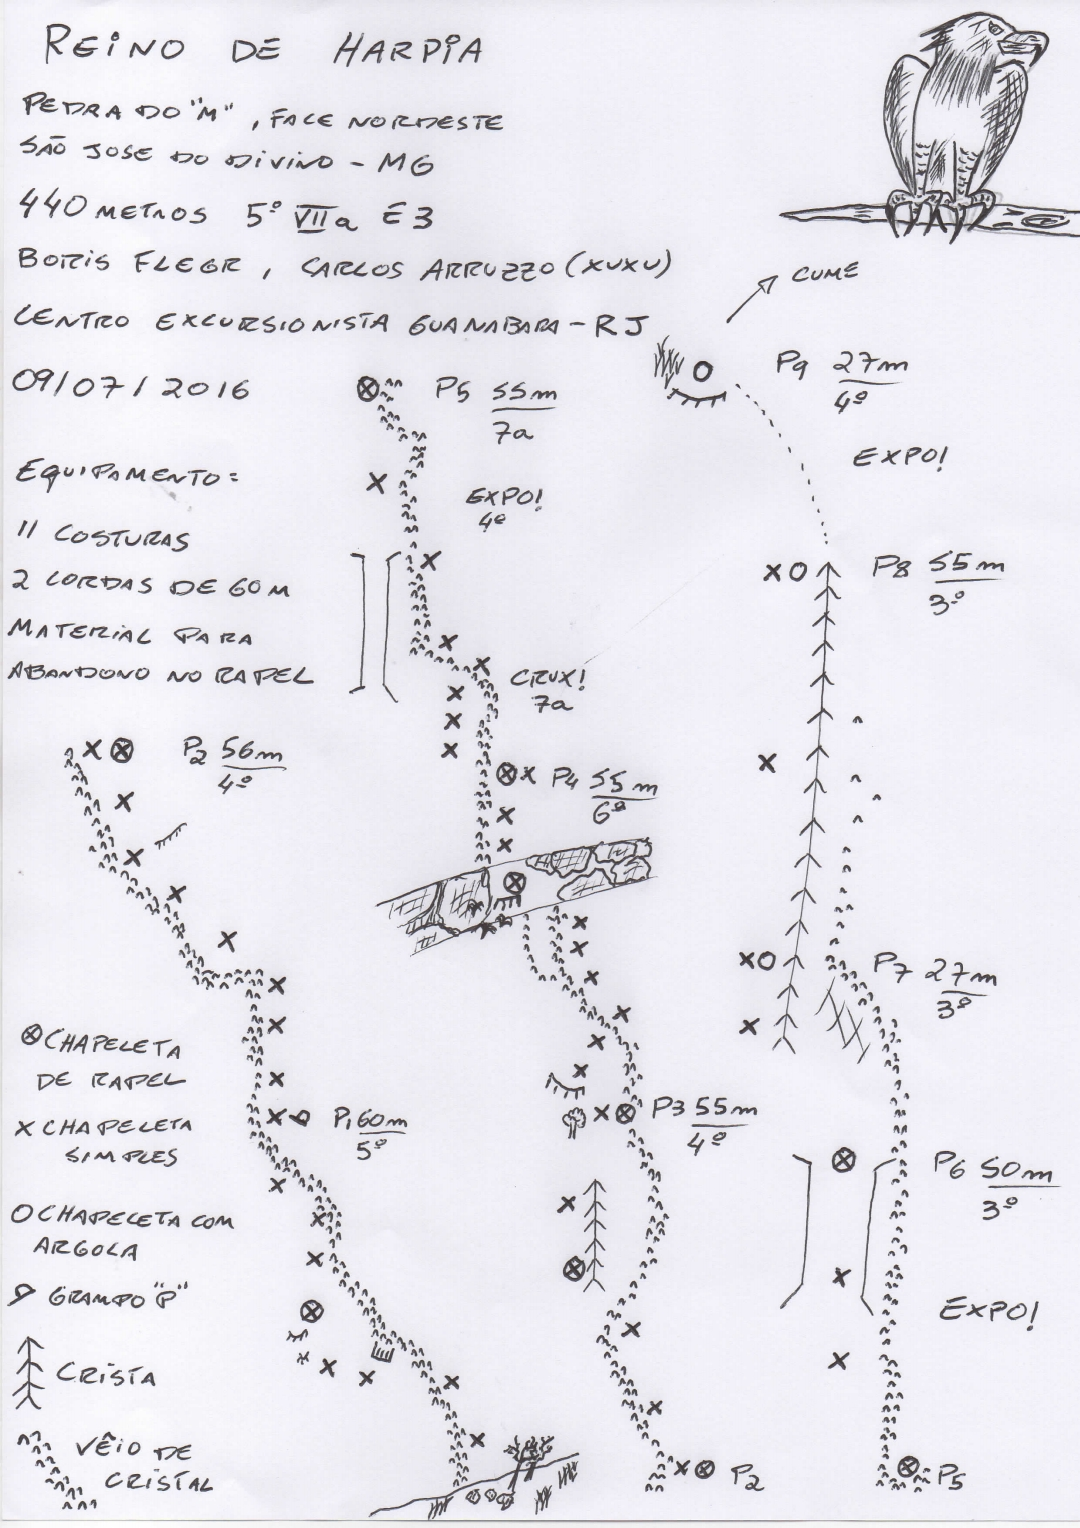 REINO DE HARPIA
PEDRA DO "M", FACE NORDESTE
SÃO JOSE DO DIVINO - MG
440 METROS 5º VIIa E3
BORIS FLEGR, CARLOS ARRUZZO (XUXU)
CENTRO EXCURSIONISTA GUANABARA - RJ
09/07/2016
EQUIPAMENTO:
11 COSTURAS
2 CORDAS DE 60M
MATERIAL PARA
ABANDONO NO RAPEL
P2 56m
4º
CHAPELETA
DE RAPEL
X CHAPELETA
SIMPLES
CHAPELETA COM
ARGOLA
GRAMPO "P"
CRISTA
VÊIO DE
CRISTAL
P1 60m
5º
P5 55m
7a
EXPO!
4º
CRUX!
7a
P4 55m
6º
P3 55m
4º
P2
CUME
P9 27m
4º
EXPO!
P8 55m
3º
P7 27m
3º
P6 50m
3º
EXPO!
P5